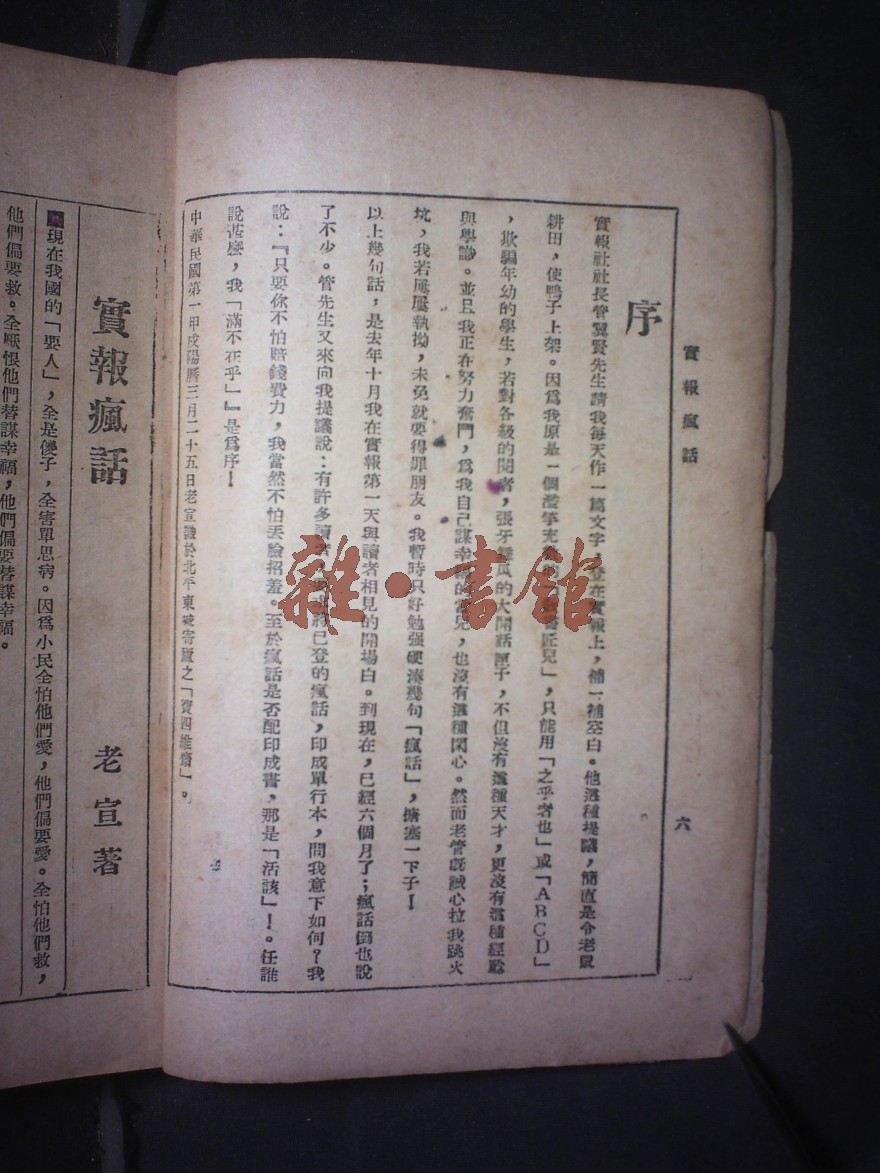 實報瘋話
六
序
實報社社長管翼賢先生請我每天作一篇文字，登在實報上，補一補空白。他這種提議，簡直是令老鼠
耕田，使鴨子上架。因爲我原是一個濫竽充數的書匠兒」，只能用「之乎者也」或「ABCD」
，欺騙年幼的學生，若對各級的閱者，張牙舞爪的大開話匣子，不但沒有這種天才，更沒有這種經驗
與學識。並且我正在努力奮鬥，爲我自己謀幸福的當兒，也沒有這種閑心。然而老管旣誠心拉我跳火
坑，我若屢屢執拗，未免就要得罪朋友。我暫時只好勉强硬湊幾句「瘋話」，搪塞一下子！
以上幾句話，是去年十月我在實報第一天與讀者相見的開場白。到現在，已經六個月了；瘋話倒也說
了不少。管先生又來向我提議說：有許多讀者將已登的瘋話，印成單行本，問我意下如何？我
說：『只要你不怕賠錢費力，我當然不怕丟臉招羞。至於瘋話是否配印成書，那是「活該」！。任誰
說甚麼，我「滿不在乎」』是爲序！
中華民國第一甲戍陽曆三月二十五日老宣識於北平東城寄廬之「資四維齋」。
雜·書館
實報瘋話
老宣著
現在我國的「要人」，全是傻子，全害單思病。因爲小民全怕他們愛，他們偏要愛。全怕他們救，
他們偏要救。全厭恨他們替謀幸福，他們偏要替謀幸福。